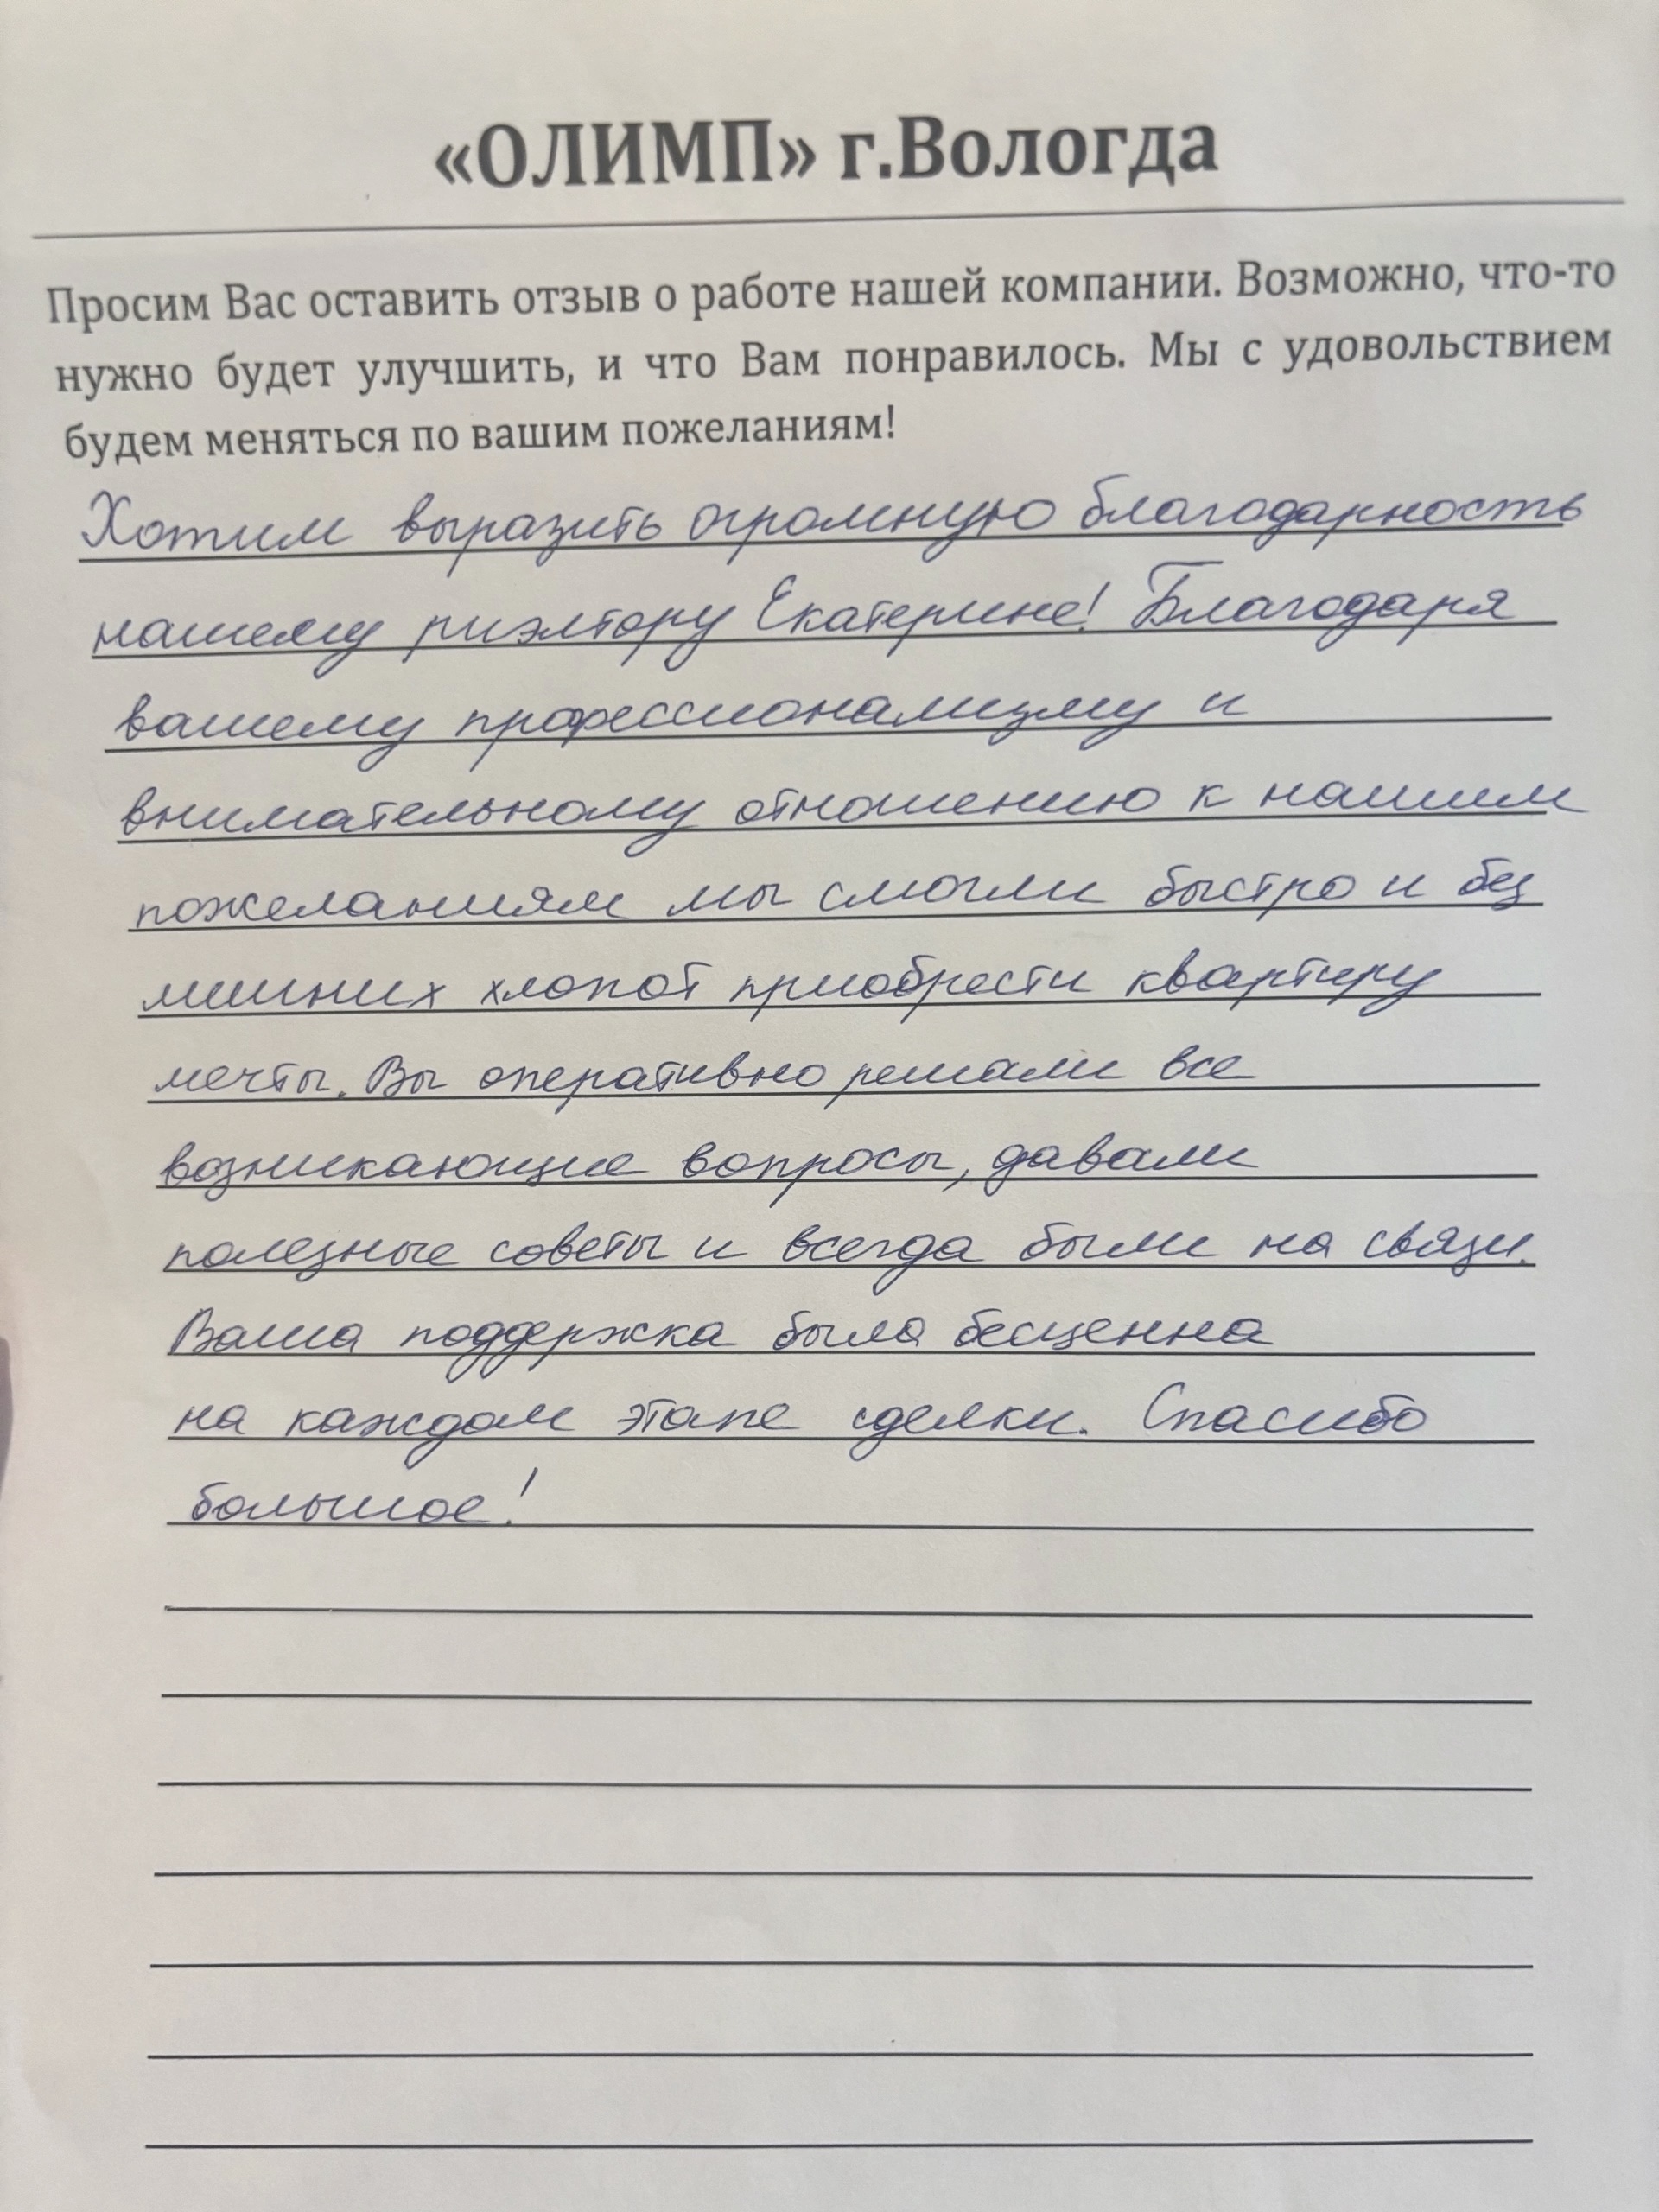 «ОЛИМП» г.Вологда
Просим Вас оставить отзыв о работе нашей компании. Возможно, что-то
нужно будет улучшить, и что Вам понравилось. Мы с удовольствием
будем меняться по вашим пожеланиям!
Хотим выразить огромную благодарность
нашему риэлтору Екатерине! Благодаря
вашему профессионализму и
внимательному отношению к нашим
пожеланиям мы смогли быстро и без
лишних хлопот приобрести квартиру
мечты. Вы оперативно решали все
возникающие вопросы, давали
полезные советы и всегда были на связи.
Ваша поддержка была бесценна
на каждом этапе сделки. Спасибо
большое!